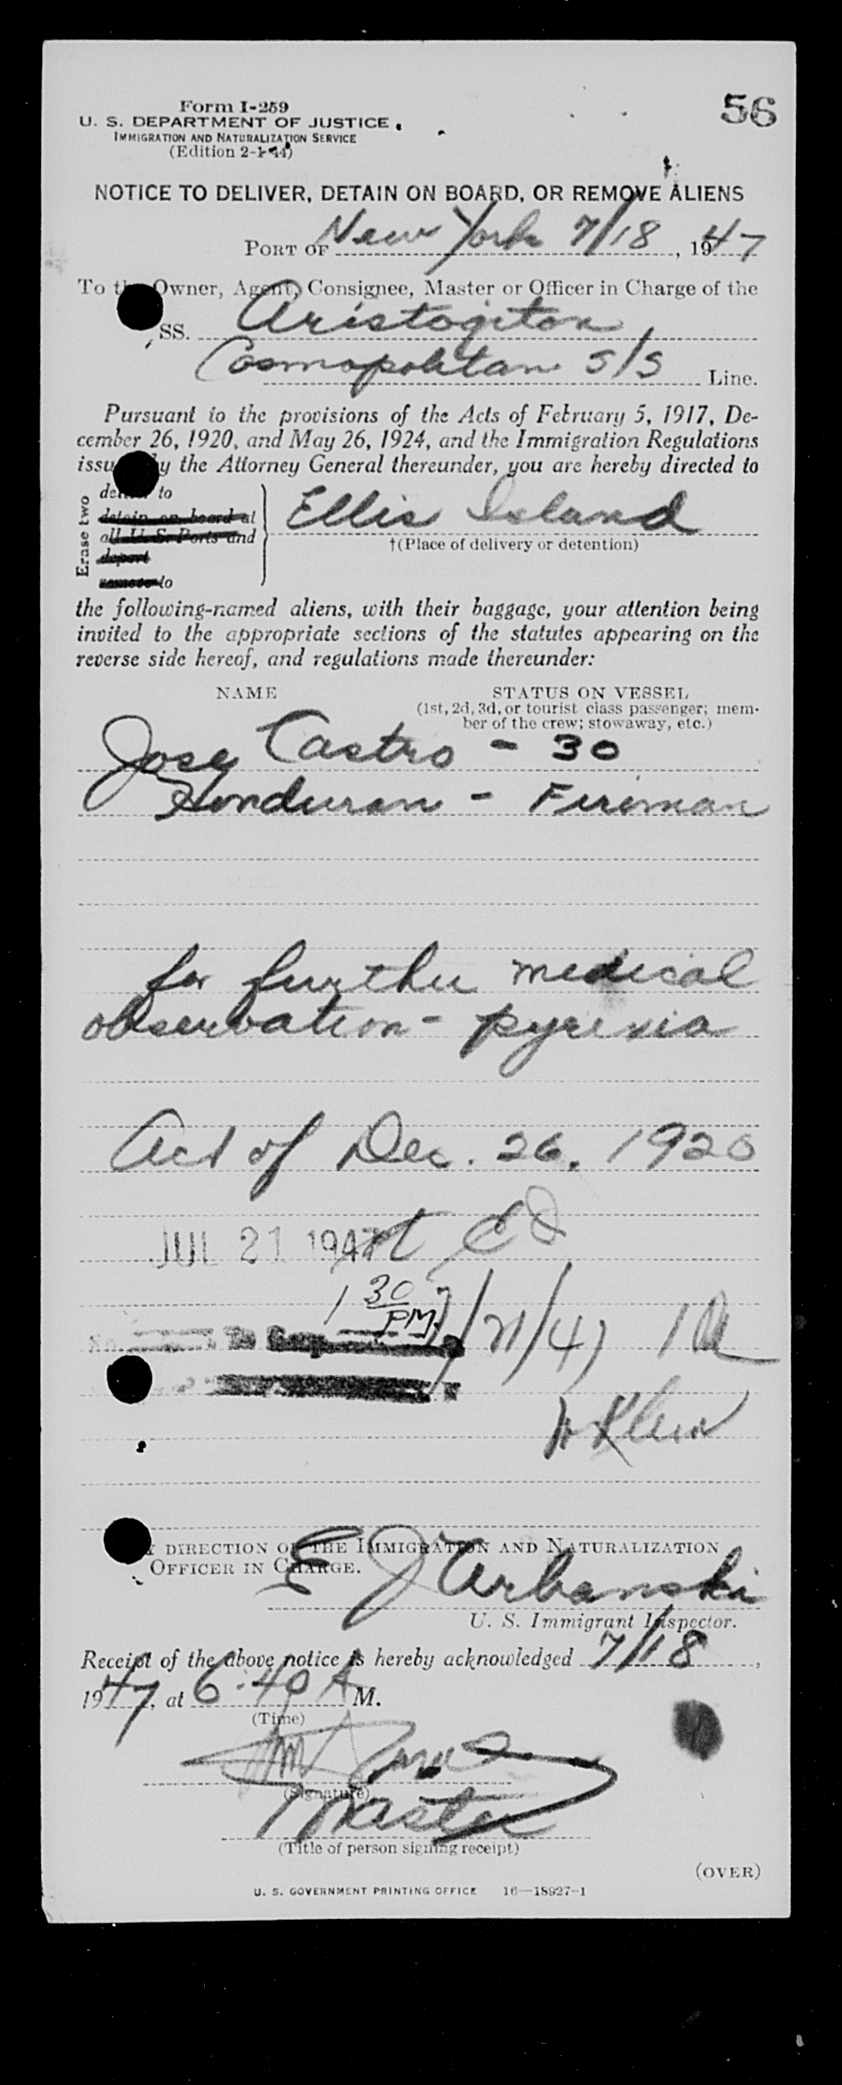 56
Form I-259
U. S. DEPARTMENT OF JUSTICE
IMMIGRATION AND NATURALIZATION SERVICE
(Edition 2-1-44)
NOTICE TO DELIVER, DETAIN ON BOARD, OR REMOVE ALIENS
PORT OF New York 7/18, 1947
To the Owner, Agent, Consignee, Master or Officer in Charge of the
SS. Aristogiton
Cosmopolitan S/S Line.
Pursuant to the provisions of the Acts of February 5, 1917, De-
cember 26, 1920, and May 26, 1924, and the Immigration Regulations
issued by the Attorney General thereunder, you are hereby directed to
Erase two
deliver to
detain on board at
all U. S. Ports and
deport
remove to
Ellis Island
†(Place of delivery or detention)
the following-named aliens, with their baggage, your attention being
invited to the appropriate sections of the statutes appearing on the
reverse side hereof, and regulations made thereunder:
NAME STATUS ON VESSEL
(1st, 2d, 3d, or tourist class passenger; mem-
ber of the crew; stowaway, etc.)
Jose Castro - 30
Honduran - Fireman
for further medical
observation - pyrexia
Act of Dec. 26, 1920
JUL 21 1947 at EI
1 30 PM 7/21/47
Klein
BY DIRECTION OF THE IMMIGRATION AND NATURALIZATION
OFFICER IN CHARGE.
E J Urbanski
U. S. Immigrant Inspector.
Receipt of the above notice is hereby acknowledged 7/18,
1947, at 6:40 A M.
(Time)
(Signature)
Master
(Title of person signing receipt)
(OVER)
U. S. GOVERNMENT PRINTING OFFICE 16—18927-1